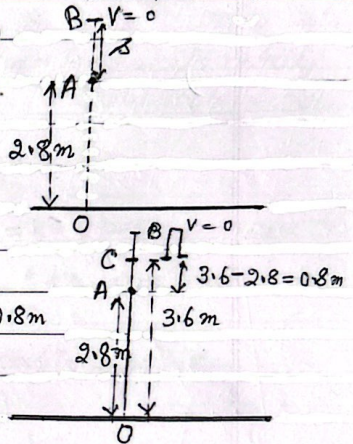 B V = 0
s
A
2.8m
O
B V = 0
C
3.6-2.8=0.8m
A
0.8m
3.6m
2.8m
O